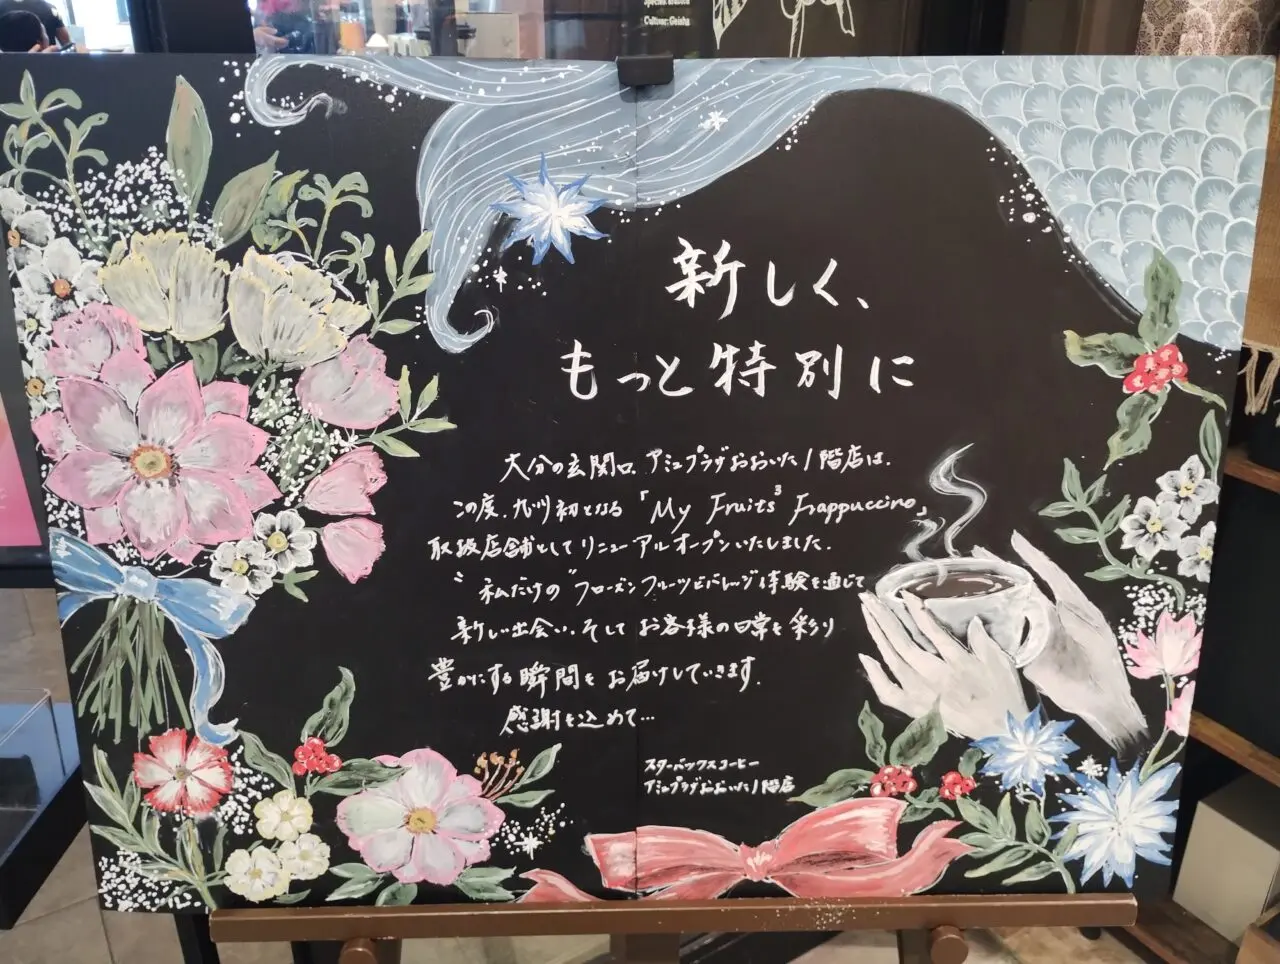 Species: arabica
Cultivar: Geisha
新しく、
もっと特別に
大分の玄関口、アミュプラザおおいた1階店は、
この度、九州初となる「My Fruits³ Frappuccino」
取扱店舗としてリニューアルオープンいたしました。
"私だけの"フローズンフルーツビバレッジ体験を通じて
新しい出会い、そしてお客様の日常を彩り
豊かにする瞬間をお届けしていきます。
感謝を込めて…
スターバックスコーヒー
アミュプラザおおいた1階店